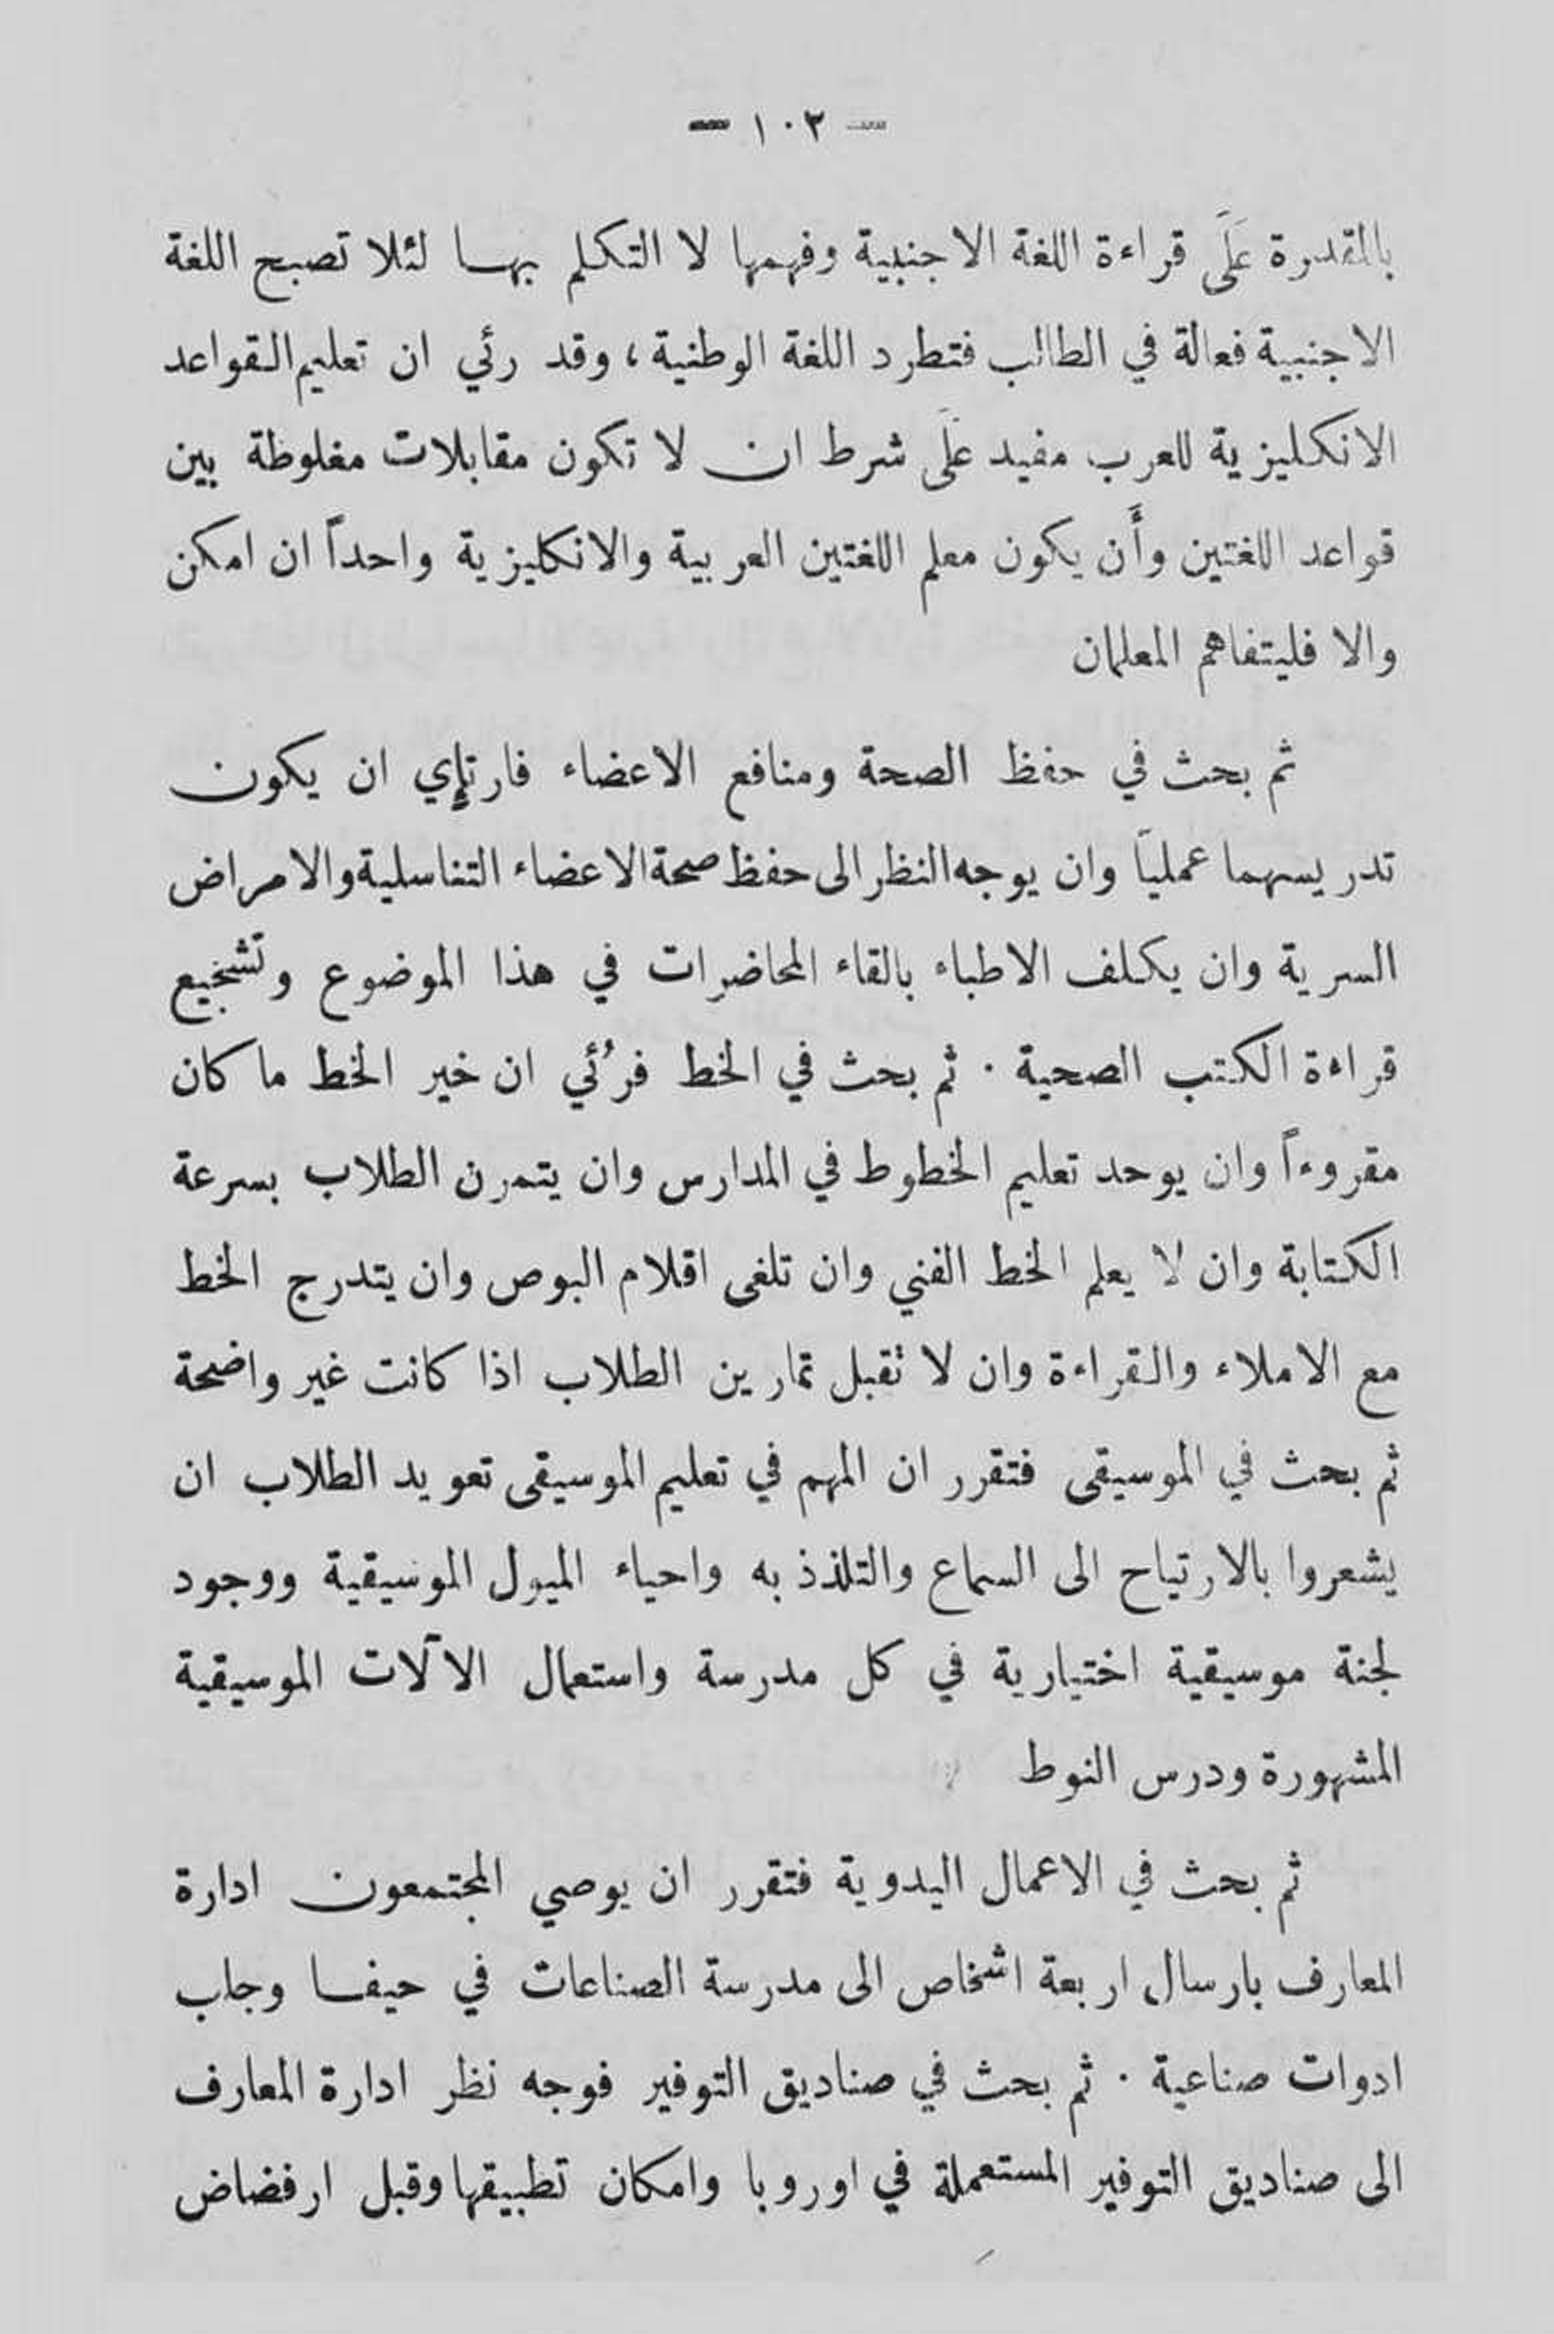 — ١٠٣ —
بالمقدرة عَلَى قراءة اللغة الاجنبية وفهمها لا التكلم بهـا لئلا تصبح اللغة
الاجنبية فعالة في الطالب فتطرد اللغة الوطنية ، وقد رئي ان تعليم القواعد
الانكليزية للعرب مفيد عَلَى شرط ان لا تكون مقابلات مغلوظة بين
قواعد اللغتين وأَن يكون معلم اللغتين العربية والانكليزية واحداً ان امكن
والا فليتفاهم المعلمان
ثم بحث في حفظ الصحة ومنافع الاعضاء فارتإي ان يكون
تدريسهما عملياً وان يوجه النظر الى حفظ صحة الاعضاء التناسلية والامراض
السرية وان يكلف الاطباء بالقاء المحاضرات في هذا الموضوع وتشجيع
قراءة الكتب الصحية . ثم بحث في الخط فرُئي ان خير الخط ما كان
مقروءاً وان يوحد تعليم الخطوط في المدارس وان يتمرن الطلاب بسرعة
الكتابة وان لا يعلم الخط الفني وان تلغى اقلام البوص وان يتدرج الخط
مع الاملاء والقراءة وان لا تقبل تمارين الطلاب اذا كانت غير واضحة
ثم بحث في الموسيقى فتقرر ان المهم في تعليم الموسيقى تعويد الطلاب ان
يشعروا بالارتياح الى السماع والتلذذ به واحياء الميول الموسيقية ووجود
لجنة موسيقية اختيارية في كل مدرسة واستعمال الآلات الموسيقية
المشهورة ودرس النوط
ثم بحث في الاعمال اليدوية فتقرر ان يوصي المجتمعون ادارة
المعارف بارسال اربعة اشخاص الى مدرسة الصناعات في حيفـا وجلب
ادوات صناعية . ثم بحث في صناديق التوفير فوجه نظر ادارة المعارف
الى صناديق التوفير المستعملة في اوروبا وامكان تطبيقها وقبل ارفضاض